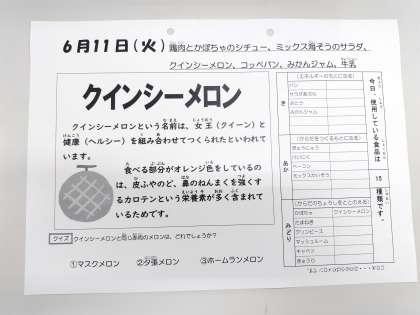 6月11日(火) 鶏肉とかぼちゃのシチュー、ミックス海そうのサラダ、
クインシーメロン、コッペパン、みかんジャム、牛乳
クインシーメロン
クインシーメロンという名前は、女王(クイーン)と
健康(ヘルシー)を組み合わせてつくられたといわれて
います。
食べる部分がオレンジ色をしているの
は、皮ふやのど、鼻のねんまくを強くす
るカロテンという栄養素が多く含まれて
いるためです。
クイズ クインシーメロンと同じ赤肉のメロンは、どれでしょうか?
①マスクメロン ②夕張メロン ③ホームランメロン
今日、使用している食品は
15
種類です。
き
(エネルギーのもとになる)
パン
サラダあぶら
さとう
みかんジャム
あか
(からだをつくるもとになる)
ぎゅうにゅう
とりにく
ベーコン
ミックスかいそう
みどり
(からだのちょうしをととのえる)
かぼちゃ クインシーメロン
たまねぎ
グリンピース
マッシュルーム
キャベツ
きゅうり